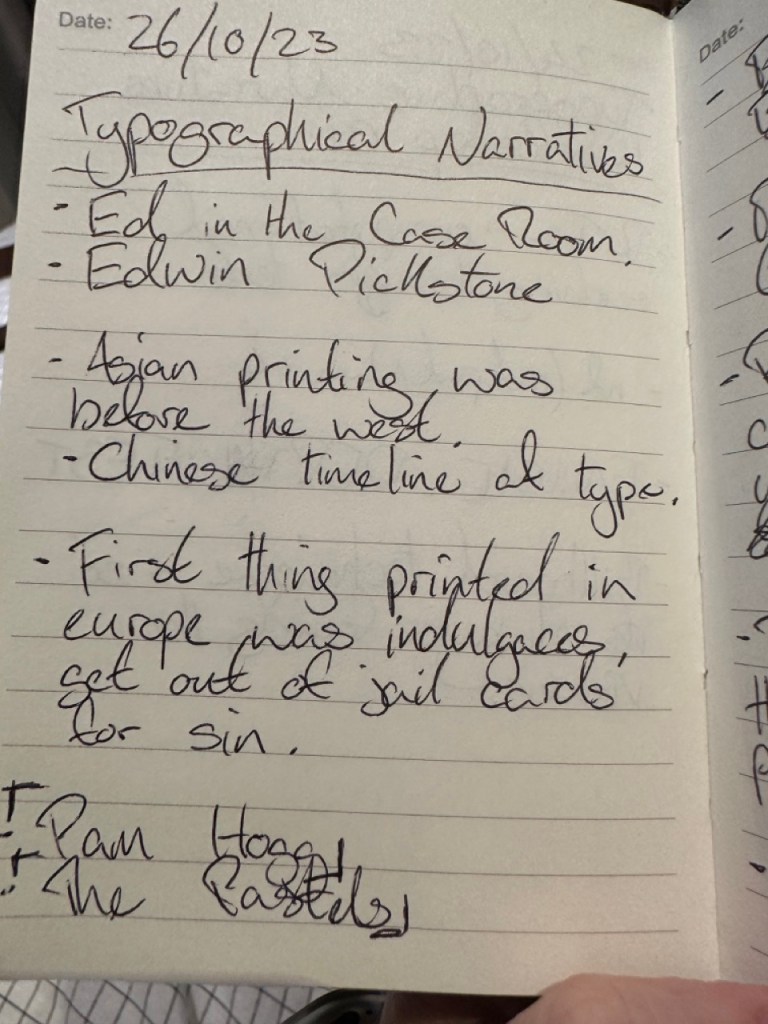 Date: 26/10/23
Typographical Narratives
- Ed in the Case Room.
- Edwin Pickstone
- Asian printing was
before the west.
- Chinese timeline of type.
- First thing printed in
europe was indulgaces,
get out of jail cards
for sin.
Pam Hogg
The Pastels
Date: